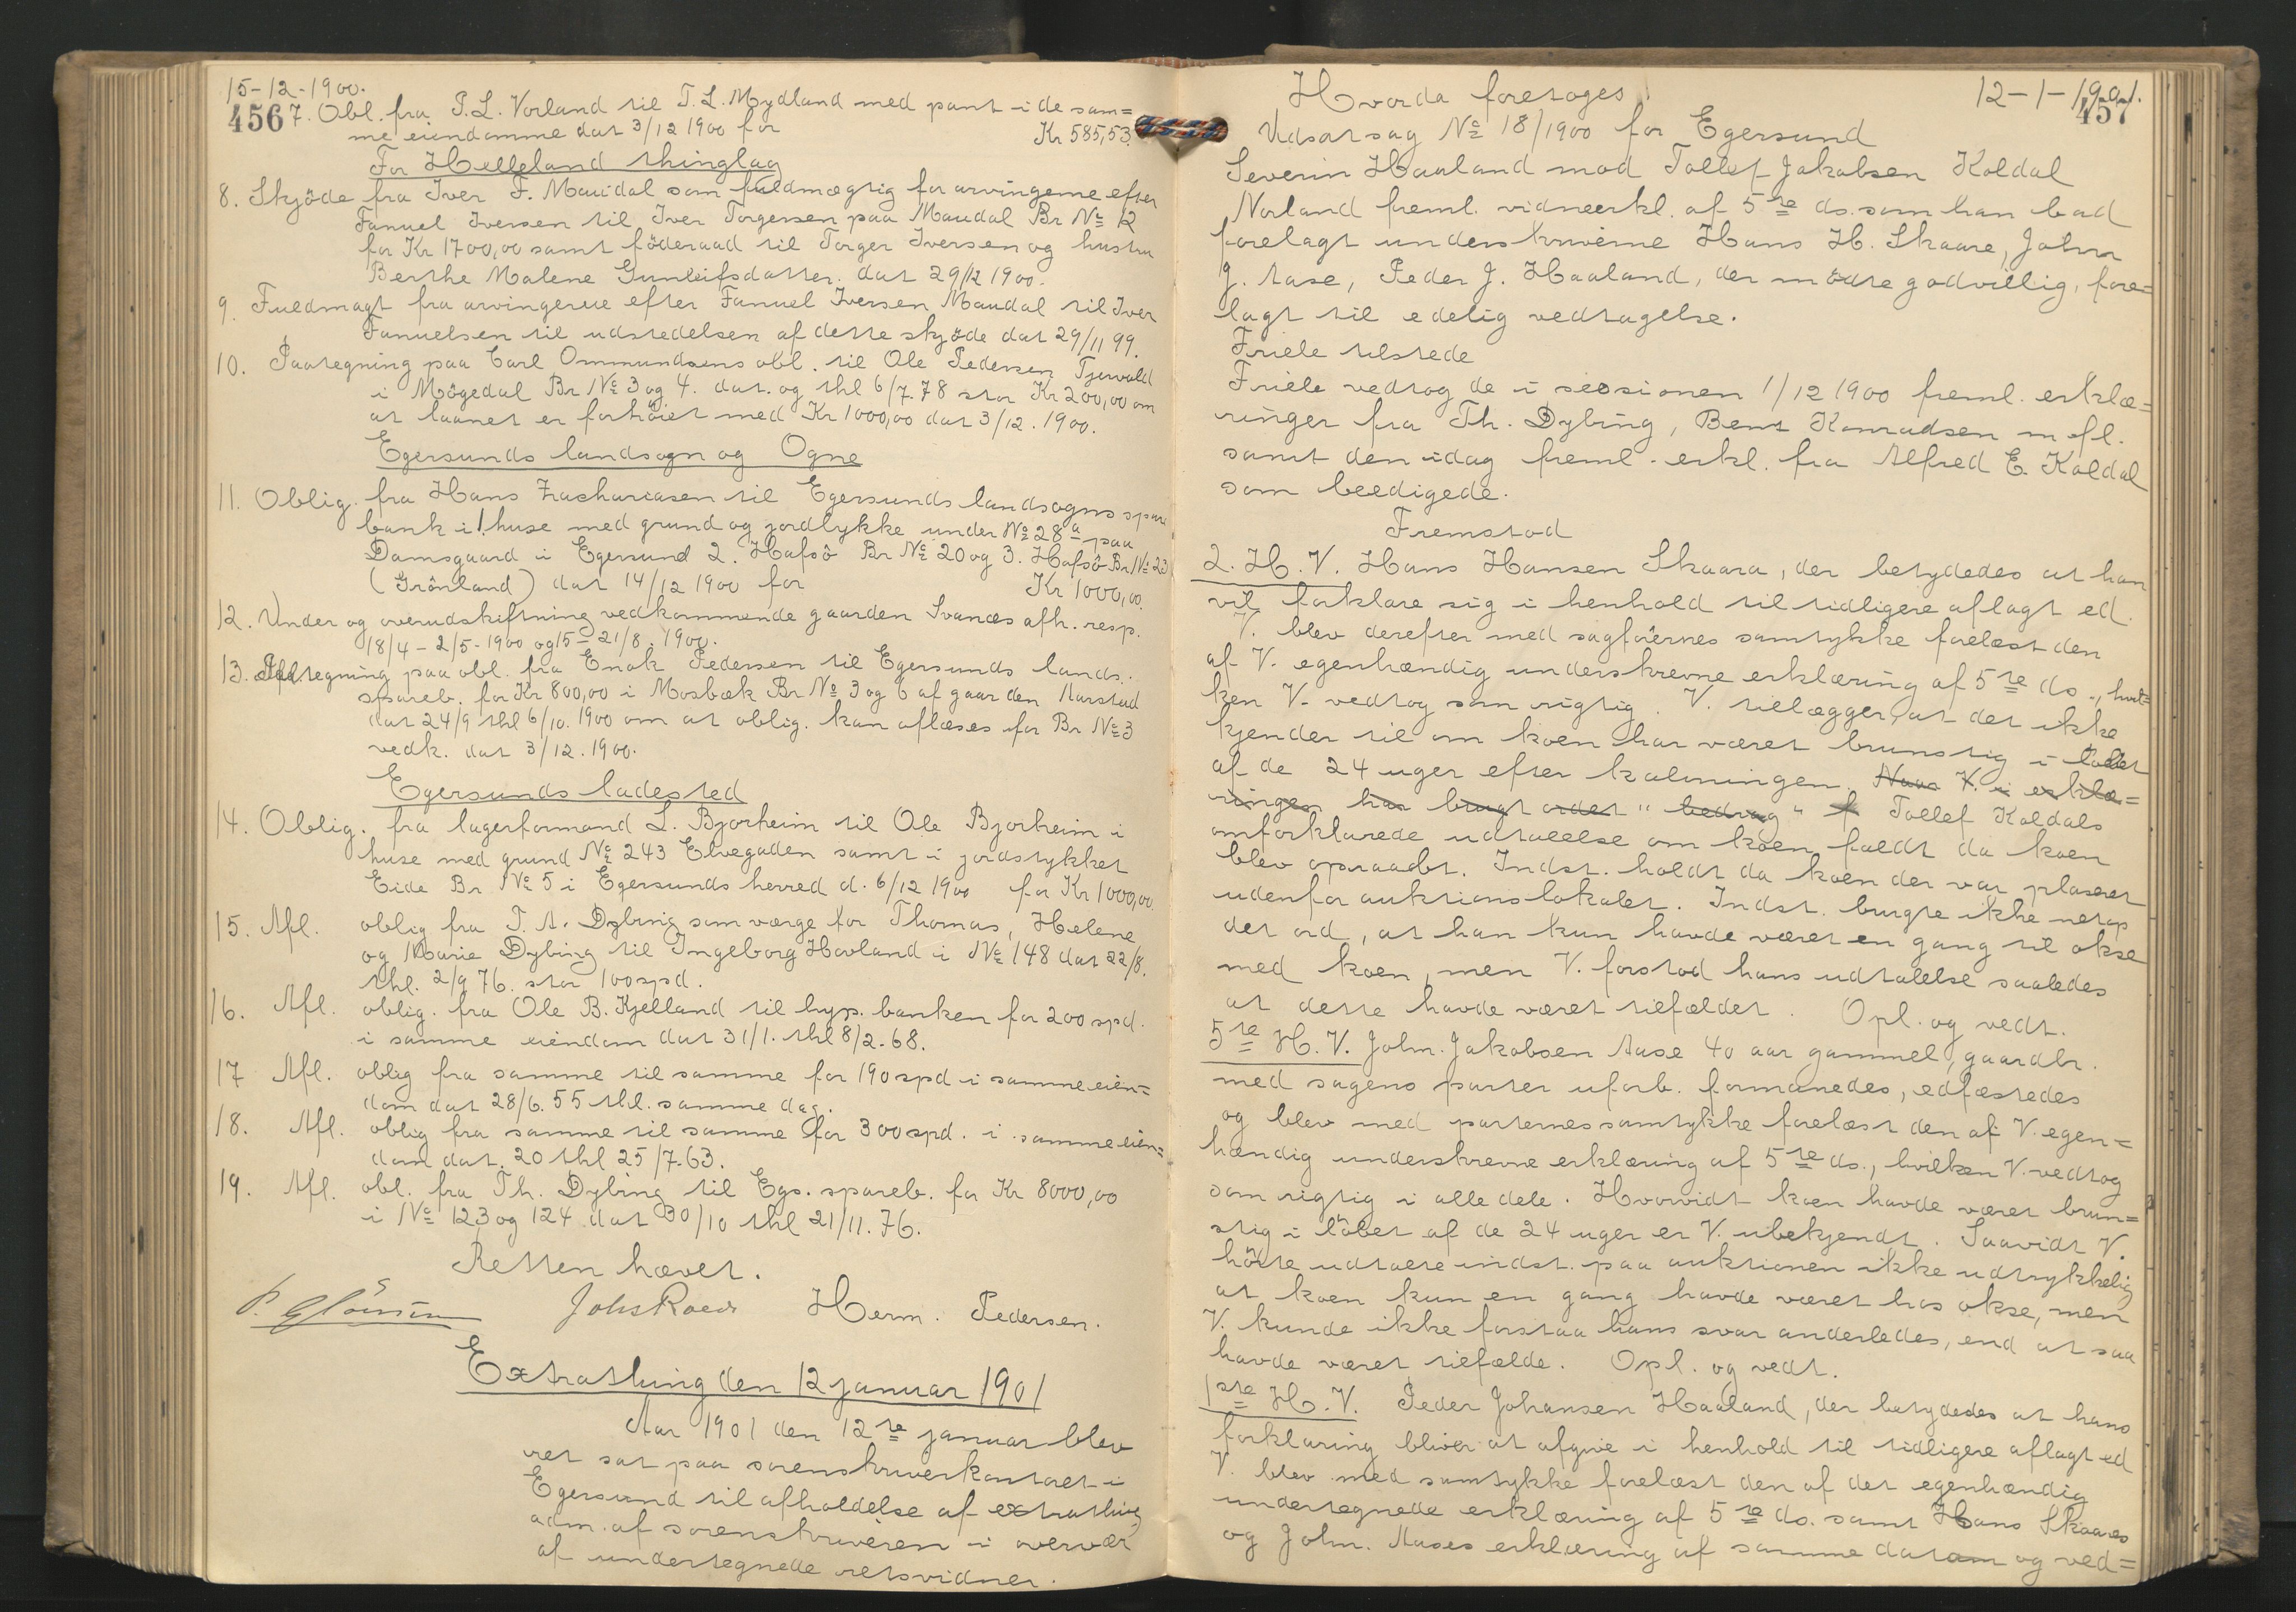 15-12-1900.
456
7. Obl. fra P. L. Vorland til T. L. Mydland med pant i de sam=
me eiendomme dat 3/12 1900 for Kr 585,53.
For Helleland thinglag
8. Skjöde fra Iver F. Maudal som fuldmægtig for arvingerne efter
Fanuel Iversen til Iver Torgersen paa Maudal Br No 12
for Kr 1700,00 samt föderaad til Torger Iversen og hustru
Berthe Malene Gunleifsdatter. dat 29/12 1900.
9. Fuldmagt fra arvingerne efter Fanuel Iversen Maudal til Iver
Fanuelsen til udstedelsen af dette skjöde dat 29/11 99.
10. Paategning paa Carl Ommundsens obl. til Ole Pedersen Tjervold
i Mögedal Br No 3 og 4. dat. og thl 6/7.78 stor Kr 200,00 om
at laanet er forhöiet med Kr 1000,00 dat 3/12. 1900.
Egersunds landsogn og Ogne
11. Oblig. fra Hans Zachariasen til Egersunds landsogns spare
bank i 1. huse med grund og jordlykke under No 28a paa
Damsgaard i Egersund 2. Hafsö Br No 20 og 3. Hafsö Br No 23
(Grönland) dat 14/12 1900 for Kr 1000,00.
12. Under og overudskiftning vedkommende gaarden Svanæs afh. resp.
18/4 - 2/5-1900 og 15-21/8. 1900.
13. Paategning paa obl. fra Enok Pedersen til Egersunds lands.
spareb. for Kr 800,00 i Mosbæk Br No 3 og 6 af gaarden Aarstad
dat 24/9 thl 6/10. 1900 om at oblig. kan aflæses for Br No 3
vedk. dat 3/12. 1900.
Egersunds ladested
14. Oblig. fra lagerformand L. Bjorheim til Ole Bjorheim i
huse med grund No 243 Elvegaden samt i jordstykket
Eide Br No 5 i Egersunds herred d. 6/12 1900 for Kr 1000,00.
15. Afl. oblig fra T. A. Dybing som værge for Thomas, Helene
og Marie Dybing til Ingeborg Hovland i No 148 dat 22/8.
thl. 2/9 76. stor 100 spd.
16. Afl. oblig. fra Ole B. Kjelland til hyp. banken for 200 spd.
i samme eiendom dat 31/1. thl 8/2-68.
17 Afl. oblig fra samme til samme for 190 spd i samme eien=
dom dat 28/6. 55 thl. samme dag.
18. Afl. oblig fra samme til samme for 300 spd. i samme eien=
dom dat. 20 thl 25/7-63.
19. Afl. obl. fra Th. Dybing til Egs. spareb. for Kr 8000,00
i No 123 og 124 dat 30/10 thl 21/11. 76.
Retten hævet.
Johs Roed Herm. Pedersen.
Extrathing den 12 januar 1901
Aar 1901 den 12te januar blev
ret sat paa sorenskriverkontoret i
Egersund til afholdelse af extrathing
adm. af sorenskriveren i overvær
af undertegnede retsvidner.
12-1-1901.
457
Hvorda foretoges
Udsatsag No 18/1900 for Egersund
Severin Haaland mod Tollef Jakobsen Koldal
Norland freml. vidneerkl. af 5te ds. som han bad
forelagt underskriverne Hans H. Skaare, John
J. Aase, Peder J. Haaland, der mödte godvillig, fore=
lagt til edelig vedtagelse.
Friele tilstede
Friele vedtog de i sessionen 1/12 1900 freml. erklæ=
ringer fra Th. Dybing, Bent Konradsen m fl.
samt den idag freml. erkl. fra Alfred E. Koldal
som beedigede.
Fremstod
2. H. V. Hans Hansen Skaara, der betydedes at han
vil forklare sig i henhold til tidligere aflagt ed.
V. blev derefter med sagförernes samtykke forelæst den
af V. egenhændig underskrevne erklæring af 5te ds., hvil=
ken V. vedtog som rigtig. V. tillægger, at det ikke
kjender til om koen har været brunstig i löbet
af de 24 uger efter kalvningen. Naar V. i erklæ=
ringen har brugt ordet "bedrag" f Tollef Koldals
omforklarede udtalelse om koen faldt da koen
blev opraabt. Indst. holdt da koen der var plaseret
udenfor auktionslokalet. Indst. brugte ikke netop
det ord, at han kun havde været en gang til okse
med koen, men V. forstod hans udtalelse saaledes
at dette havde været tilfældet. Opl. og vedt.
5te H. V. John. Jakobsen Aase 40 aar gammel, gaardbr.
med sagens parter uforb. formanedes, edfæstedes
og blev med parternes samtykke forelæst den af V. egen=
hændig underskrevne erklæring af 5te ds., hvilken V. vedtog
som rigtig i alle dele. Hvorvidt koen havde været brun=
stig i löbet af de 24 uger er V. ubekjendt. Saavidt V.
hörte udtalte indst. paa auktionen ikke udtrykkelig
at koen kun en gang havde været hos okse, men
V. kunde ikke forstaa hans svar anderledes, end at saa
havde været tilfælde. Opl. og vedt.
1ste H. V. Peder Johansen Haaland, der betydedes at hans
forklaring bliver at afgive i henhold til tidligere aflagt ed
V. blev med samtykke forelæst den af det egenhændig
undertegnede erklæring af 5te ds. samt Hans Skaares
og John. Aases erklæring af samme datum og ved=